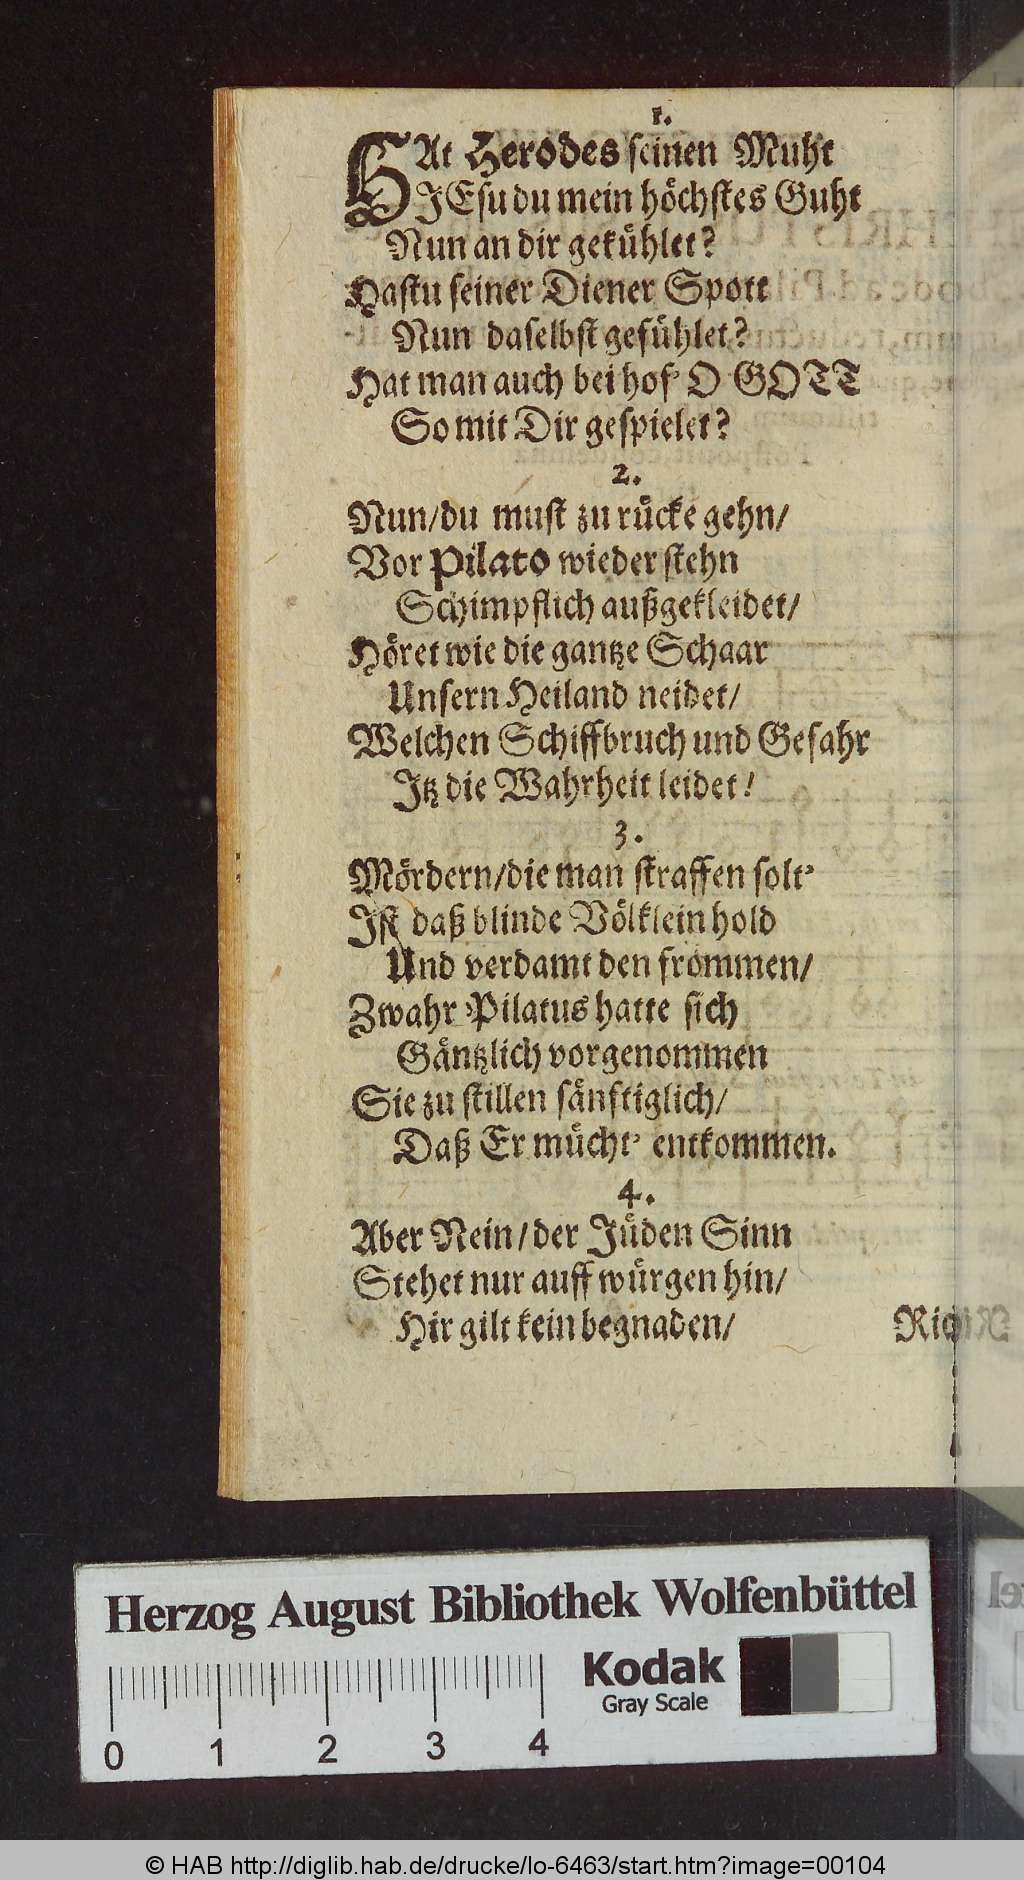 1.
HAt Herodes seinen Muht
JEsu du mein höchstes Guht
Nun an dir gekühlet?
Hastu seiner Diener Spott
Nun daselbst gefühlet?
Hat man auch bei hof' O GOTT
So mit Dir gespielet?
2.
Nun/du must zu rücke gehn/
Vor Pilato wieder stehn
Schimpflich außgekleidet/
Höret wie die gantze Schaar
Unsern Heiland neidet/
Welchen Schiffbruch und Gefahr
Itz die Wahrheit leidet!
3.
Mördern/die man straffen solt'
Ist daß blinde Völklein hold
Und verdamt den frommen/
Zwahr Pilatus hatte sich
Gäntzlich vorgenommen
Sie zu stillen sänftiglich/
Daß Er mücht' entkommen.
4.
Aber Nein/der Jüden Sinn
Stehet nur auff würgen hin/
Hir gilt kein begnaden/
Herzog August Bibliothek Wolfenbüttel
Kodak
Gray Scale
0 1 2 3 4
© HAB http://diglib.hab.de/drucke/lo-6463/start.htm?image=00104